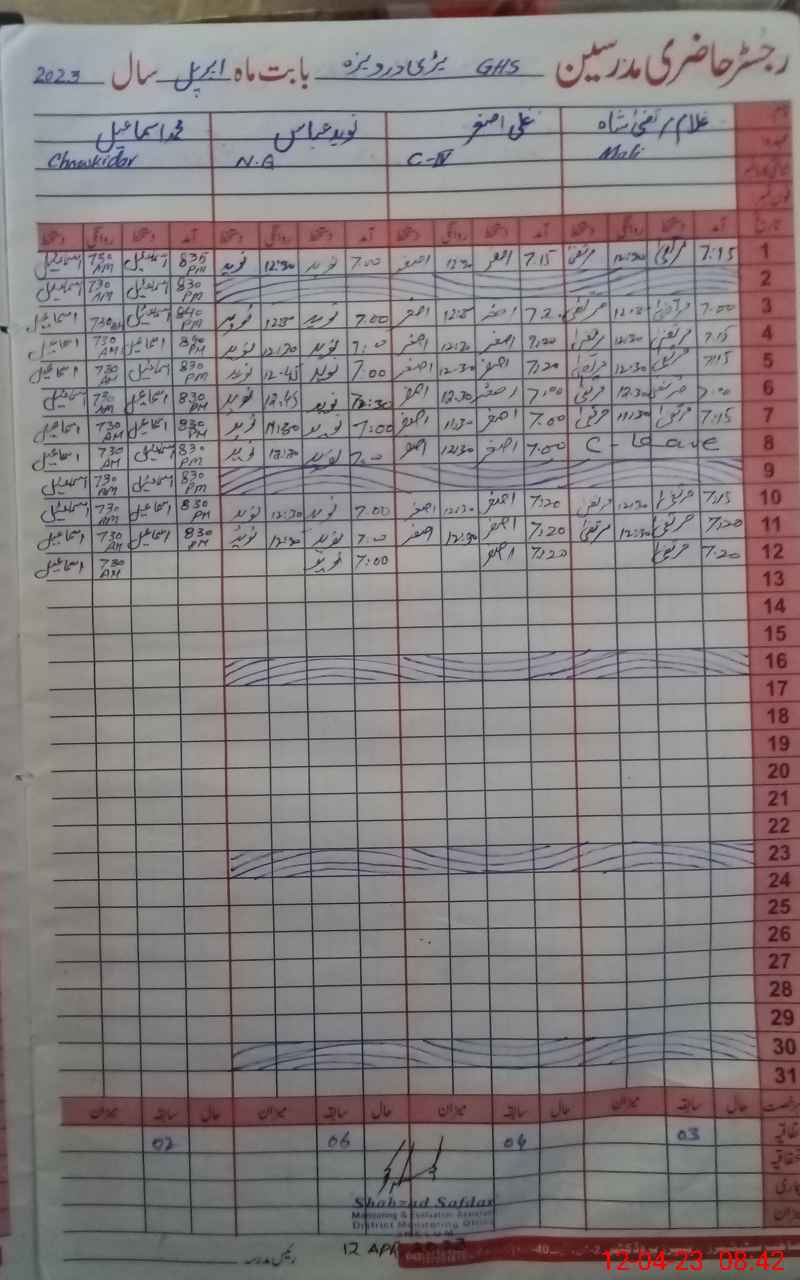 رجسٹر حاضری مدرسین GHS بڑی درویزہ بابت ماہ اپریل سال 2023
نام غلام مرتضیٰ شاہ علی اصغر نوید عباس محمد اسماعیل
عہدہ Mali C-IV N.Q Chowkidar
تاریخ آمد دستخط روانگی دستخط آمد دستخط روانگی دستخط آمد دستخط روانگی دستخط آمد دستخط روانگی دستخط
1 7:15 مرتضیٰ 12:30 مرتضیٰ 7:15 اصغر 12:30 اصغر 7:00 نوید 12:30 نوید 835 PM اسماعیل 730 AM اسماعیل
2 830 PM اسماعیل 730 AM اسماعیل
3 7:00 مرتضیٰ مرتضیٰ اصغر اصغر 7:00 نوید نوید 840 PM اسماعیل 730 AM اسماعیل
4 7:15 مرتضیٰ 12:30 مرتضیٰ 7:20 اصغر 12:30 اصغر نوید 12:30 نوید PM اسماعیل 730 AM اسماعیل
5 7:15 مرتضیٰ 12:30 مرتضیٰ 7:20 اصغر 12:30 اصغر 7:00 نوید 12:45 نوید 830 PM اسماعیل 730 AM اسماعیل
6 مرتضیٰ 12:30 مرتضیٰ 7:00 اصغر 12:30 اصغر 12:30 نوید 12:45 نوید 830 PM اسماعیل 730 AM اسماعیل
7 7:15 مرتضیٰ 11:30 مرتضیٰ 7:00 اصغر 11:30 اصغر 7:00 نوید 11:30 نوید 830 PM اسماعیل 730 AM اسماعیل
8 C-Leave 7:00 اصغر 12:30 اصغر نوید 12:30 نوید 830 PM اسماعیل 730 AM اسماعیل
9 830 PM اسماعیل 730 AM اسماعیل
10 7:15 مرتضیٰ 12:30 مرتضیٰ 7:20 اصغر 12:30 اصغر 7:00 نوید 12:30 نوید 830 PM اسماعیل 730 AM اسماعیل
11 7:20 مرتضیٰ 12:30 مرتضیٰ 7:20 اصغر 12:30 اصغر نوید 12:30 نوید 830 PM اسماعیل 730 AM اسماعیل
12 7:20 مرتضیٰ 7:20 اصغر 7:00 نوید 730 AM اسماعیل
13
14
15
16
17
18
19
20
21
22
23
24
25
26
27
28
29
30
31
رخصت حال سابقہ میزان حال سابقہ میزان حال سابقہ میزان حال سابقہ میزان
03 04 06 02
Shahzad Safdar
Monitoring & Evaluation Assistant
District Monitoring Office
رئیس مدرسہ
12 APR 2023
12-04-23 08:42